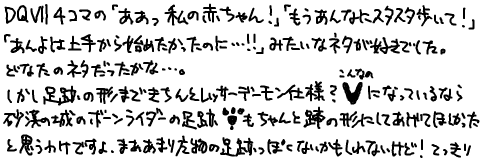 DQVII 4コマの「ああっ 私の赤ちゃん!」「もうあんなにスタスタ歩いて!」
「あんよは上手から始めたかったのに…!!」みたいなネタが好きでした。
どなたのネタだったかな…。
しかし足跡の形まできちんとレッサーデーモン仕様? こんなの になっているなら
砂漠の城のボーンライダーの足跡 もちゃんと蹄の形にしてあげてほしかった
と思うわけですよ。まああまり友物の足跡っぽくないかもしれないけど! てっきり